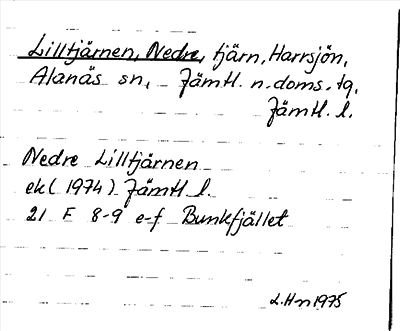 Lilltjärnen, Nedre, tjärn, Harrsjön,
Alanäs sn, Jämtl. n. doms. tg,
Jämtl. l.
Nedre Lilltjärnen
ek (1974) Jämtl l.
21 F 8-9 e-f Bunkfjället
L.Hn 1975